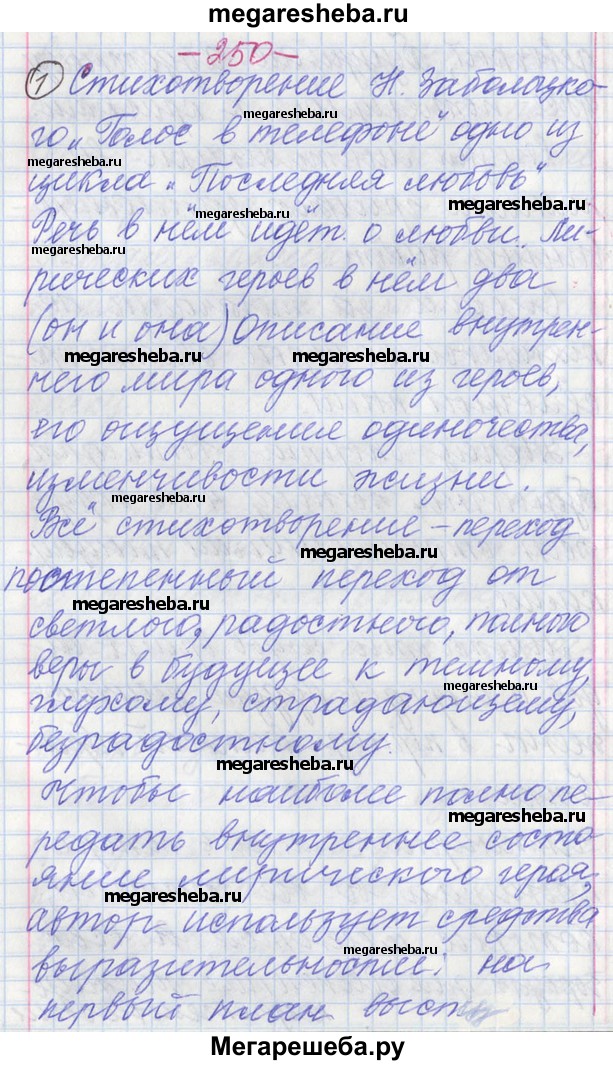 megaresheba.ru
megaresheba.ru
-250-
1 Стихотворение Н. Заболоцко-
megaresheba.ru
го „Голос в телефоне" одно из
megaresheba.ru
цикла „Последняя любовь".
megaresheba.ru
Речь в нём идёт о любви. Ли-
рических героев в нём два
(он и она) Описание внутрен-
megaresheba.ru megaresheba.ru
него мира одного из героев,
его ощущения одиночества,
изменчивости жизни.
megaresheba.ru
Всё стихотворение - переход
megaresheba.ru
постепенный переход от
megaresheba.ru
светлого, радостного, полного
веры в будущее к темному,
megaresheba.ru
глухому, страдающему,
безрадостному.
megaresheba.ru
Чтобы наиболее полно пе-
megaresheba.ru
редать внутреннее состо-
яние лирического героя,
megaresheba.ru
автор использует средства
megaresheba.ru
выразительности: на
первый план высту
Мегарешеба.ру